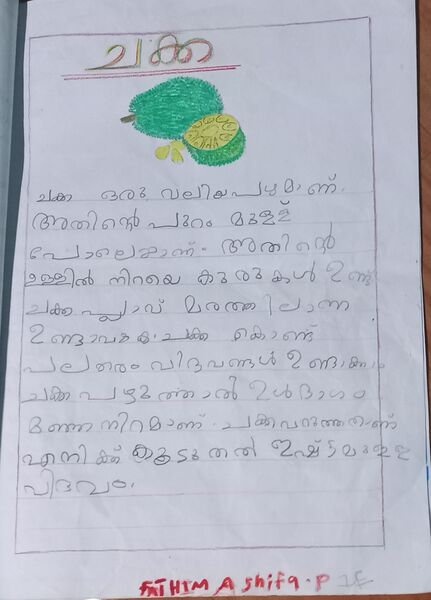 ചക്ക
ചക്ക ഒരു വലിയ പഴമാണ്.
അതിൻ്റെ പുറം മുള്ള്
പോലെയാണ്. അതിൻ്റെ
ഉള്ളിൽ നിറയെ കുരുകൾ ഉണ്ട്
ചക്ക പ്ലാവ് മരത്തിലാണ്
ഉണ്ടാവുക. ചക്ക കൊണ്ട്
പലതരം വിഭവങ്ങൾ ഉണ്ടാക്കാം
ചക്ക പഴുത്താൽ ഉൾഭാഗം
മഞ്ഞനിറമാണ്. ചക്കവറുത്തതാണ്
എനിക്ക് കൂടുതൽ ഇഷ്ടമുള്ള
വിഭവം.
FATHIM A Shifa.P